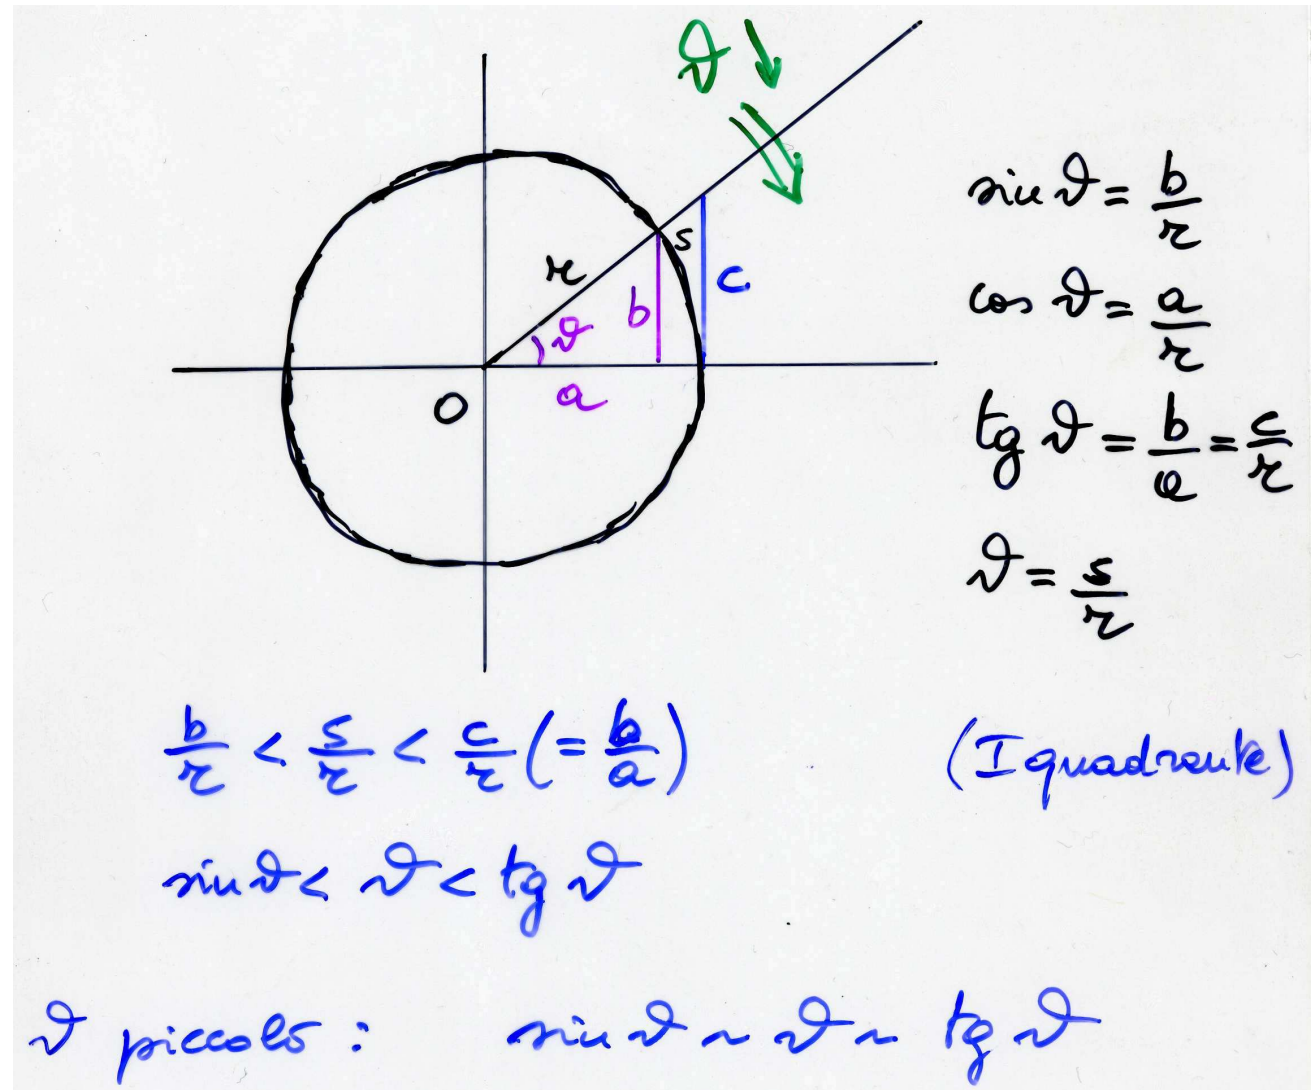 ϑ ↓
sin ϑ = b/r
s
r
c
cos ϑ = a/r
b
ϑ
a
O
tg ϑ = b/a = c/r
ϑ = s/r
b/r < s/r < c/r (= b/a) (I quadrante)
sin ϑ < ϑ < tg ϑ
ϑ piccolo : sin ϑ ~ ϑ ~ tg ϑ